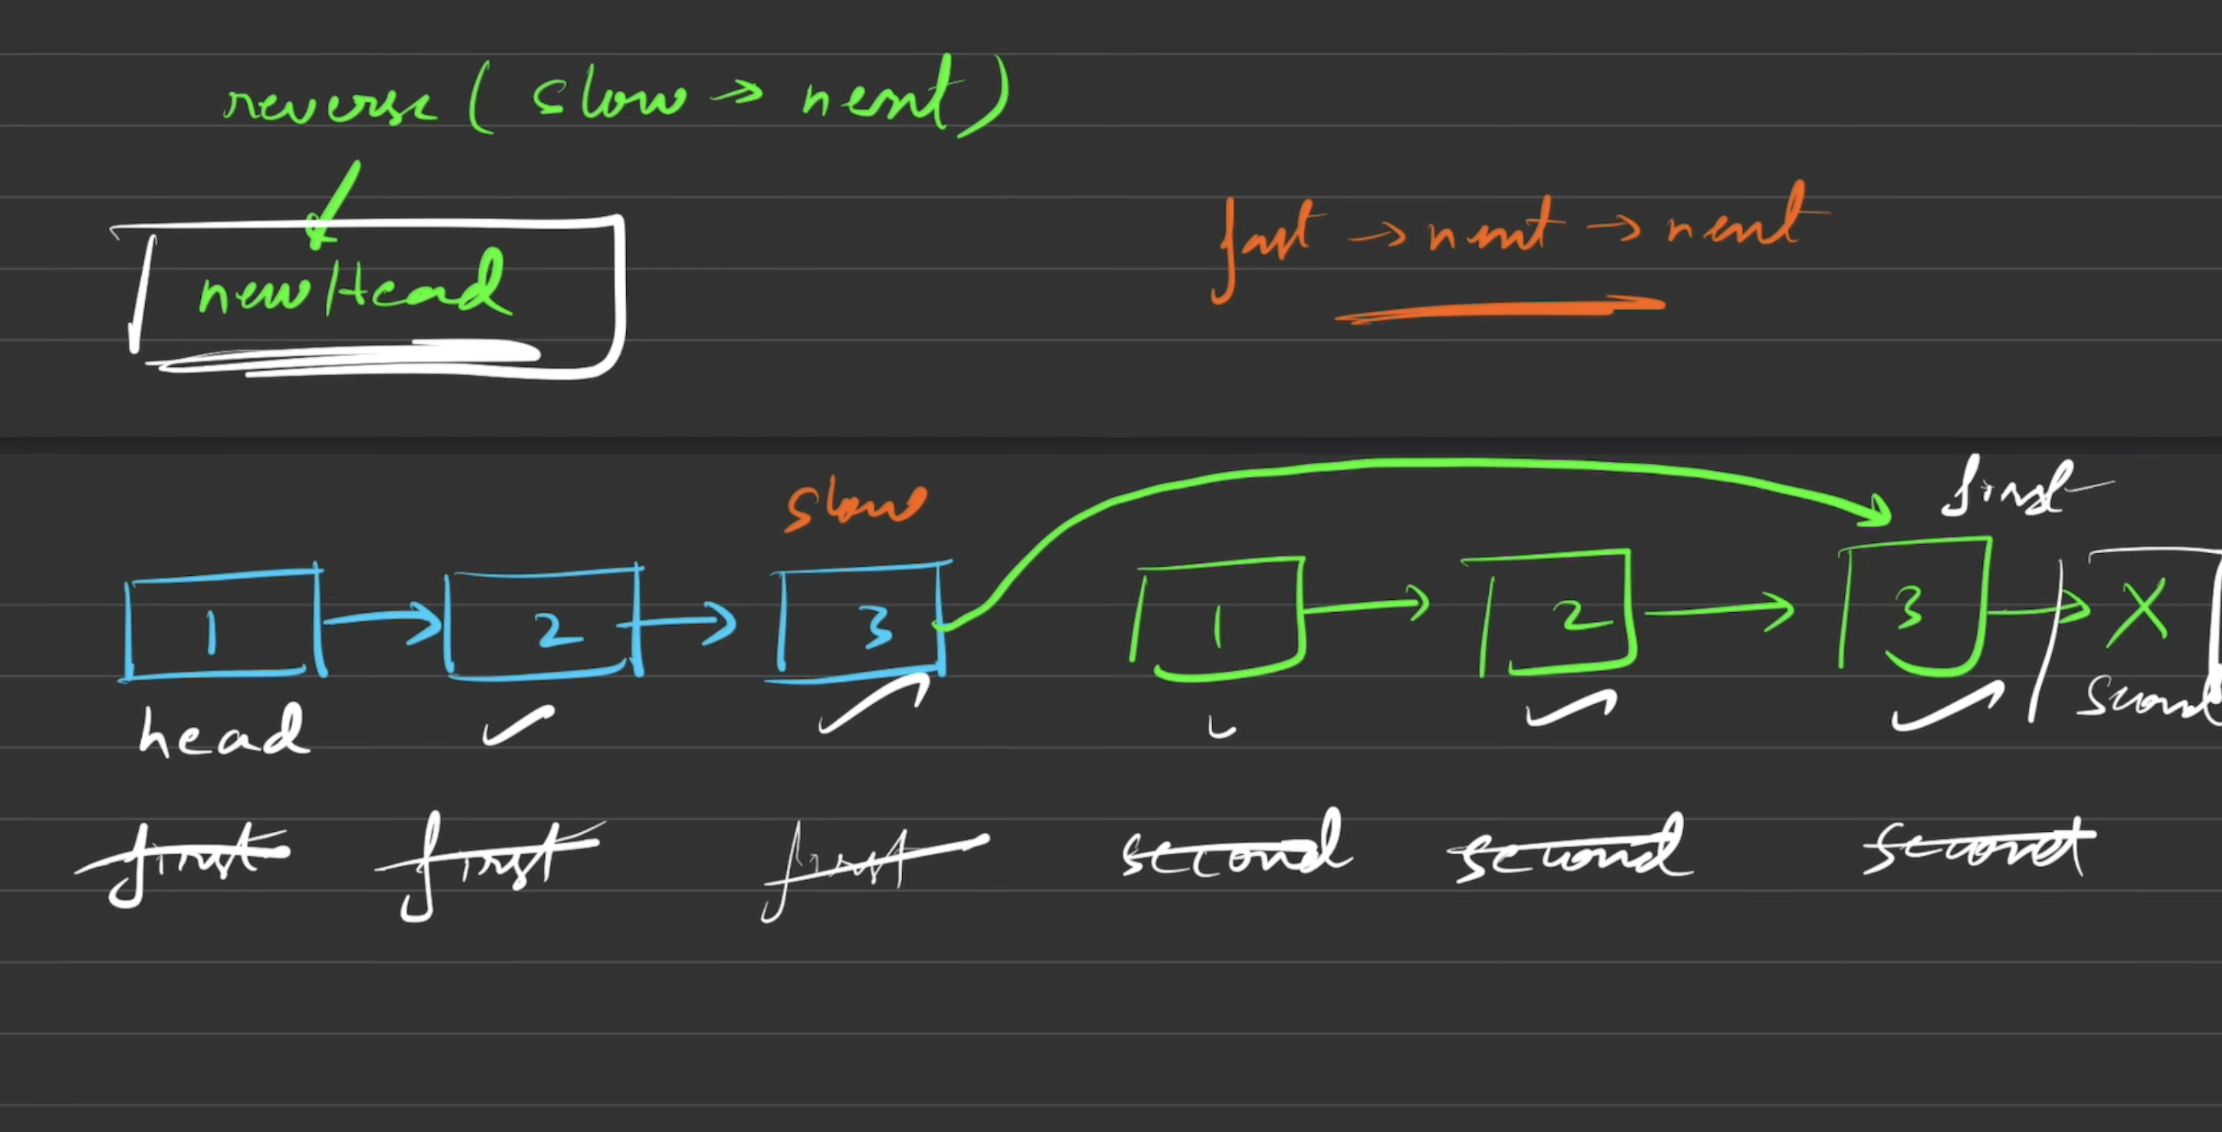 reverse ( slow → next )
newHead
fast → next → next
slow
first
1 → 2 → 3 1 → 2 → 3 → X
head
second
first first first second second second